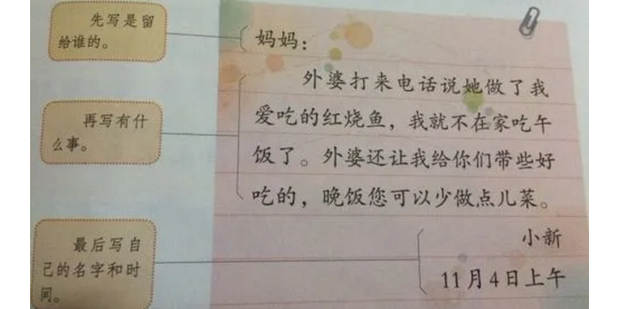 先写是留
给谁的。
妈妈：
外婆打来电话说她做了我
爱吃的红烧鱼，我就不在家吃午
饭了。外婆还让我给你们带些好
吃的，晚饭您可以少做点儿菜。
再写有什
么事。
小新
11月4日上午
最后写自
己的名字和时
间。